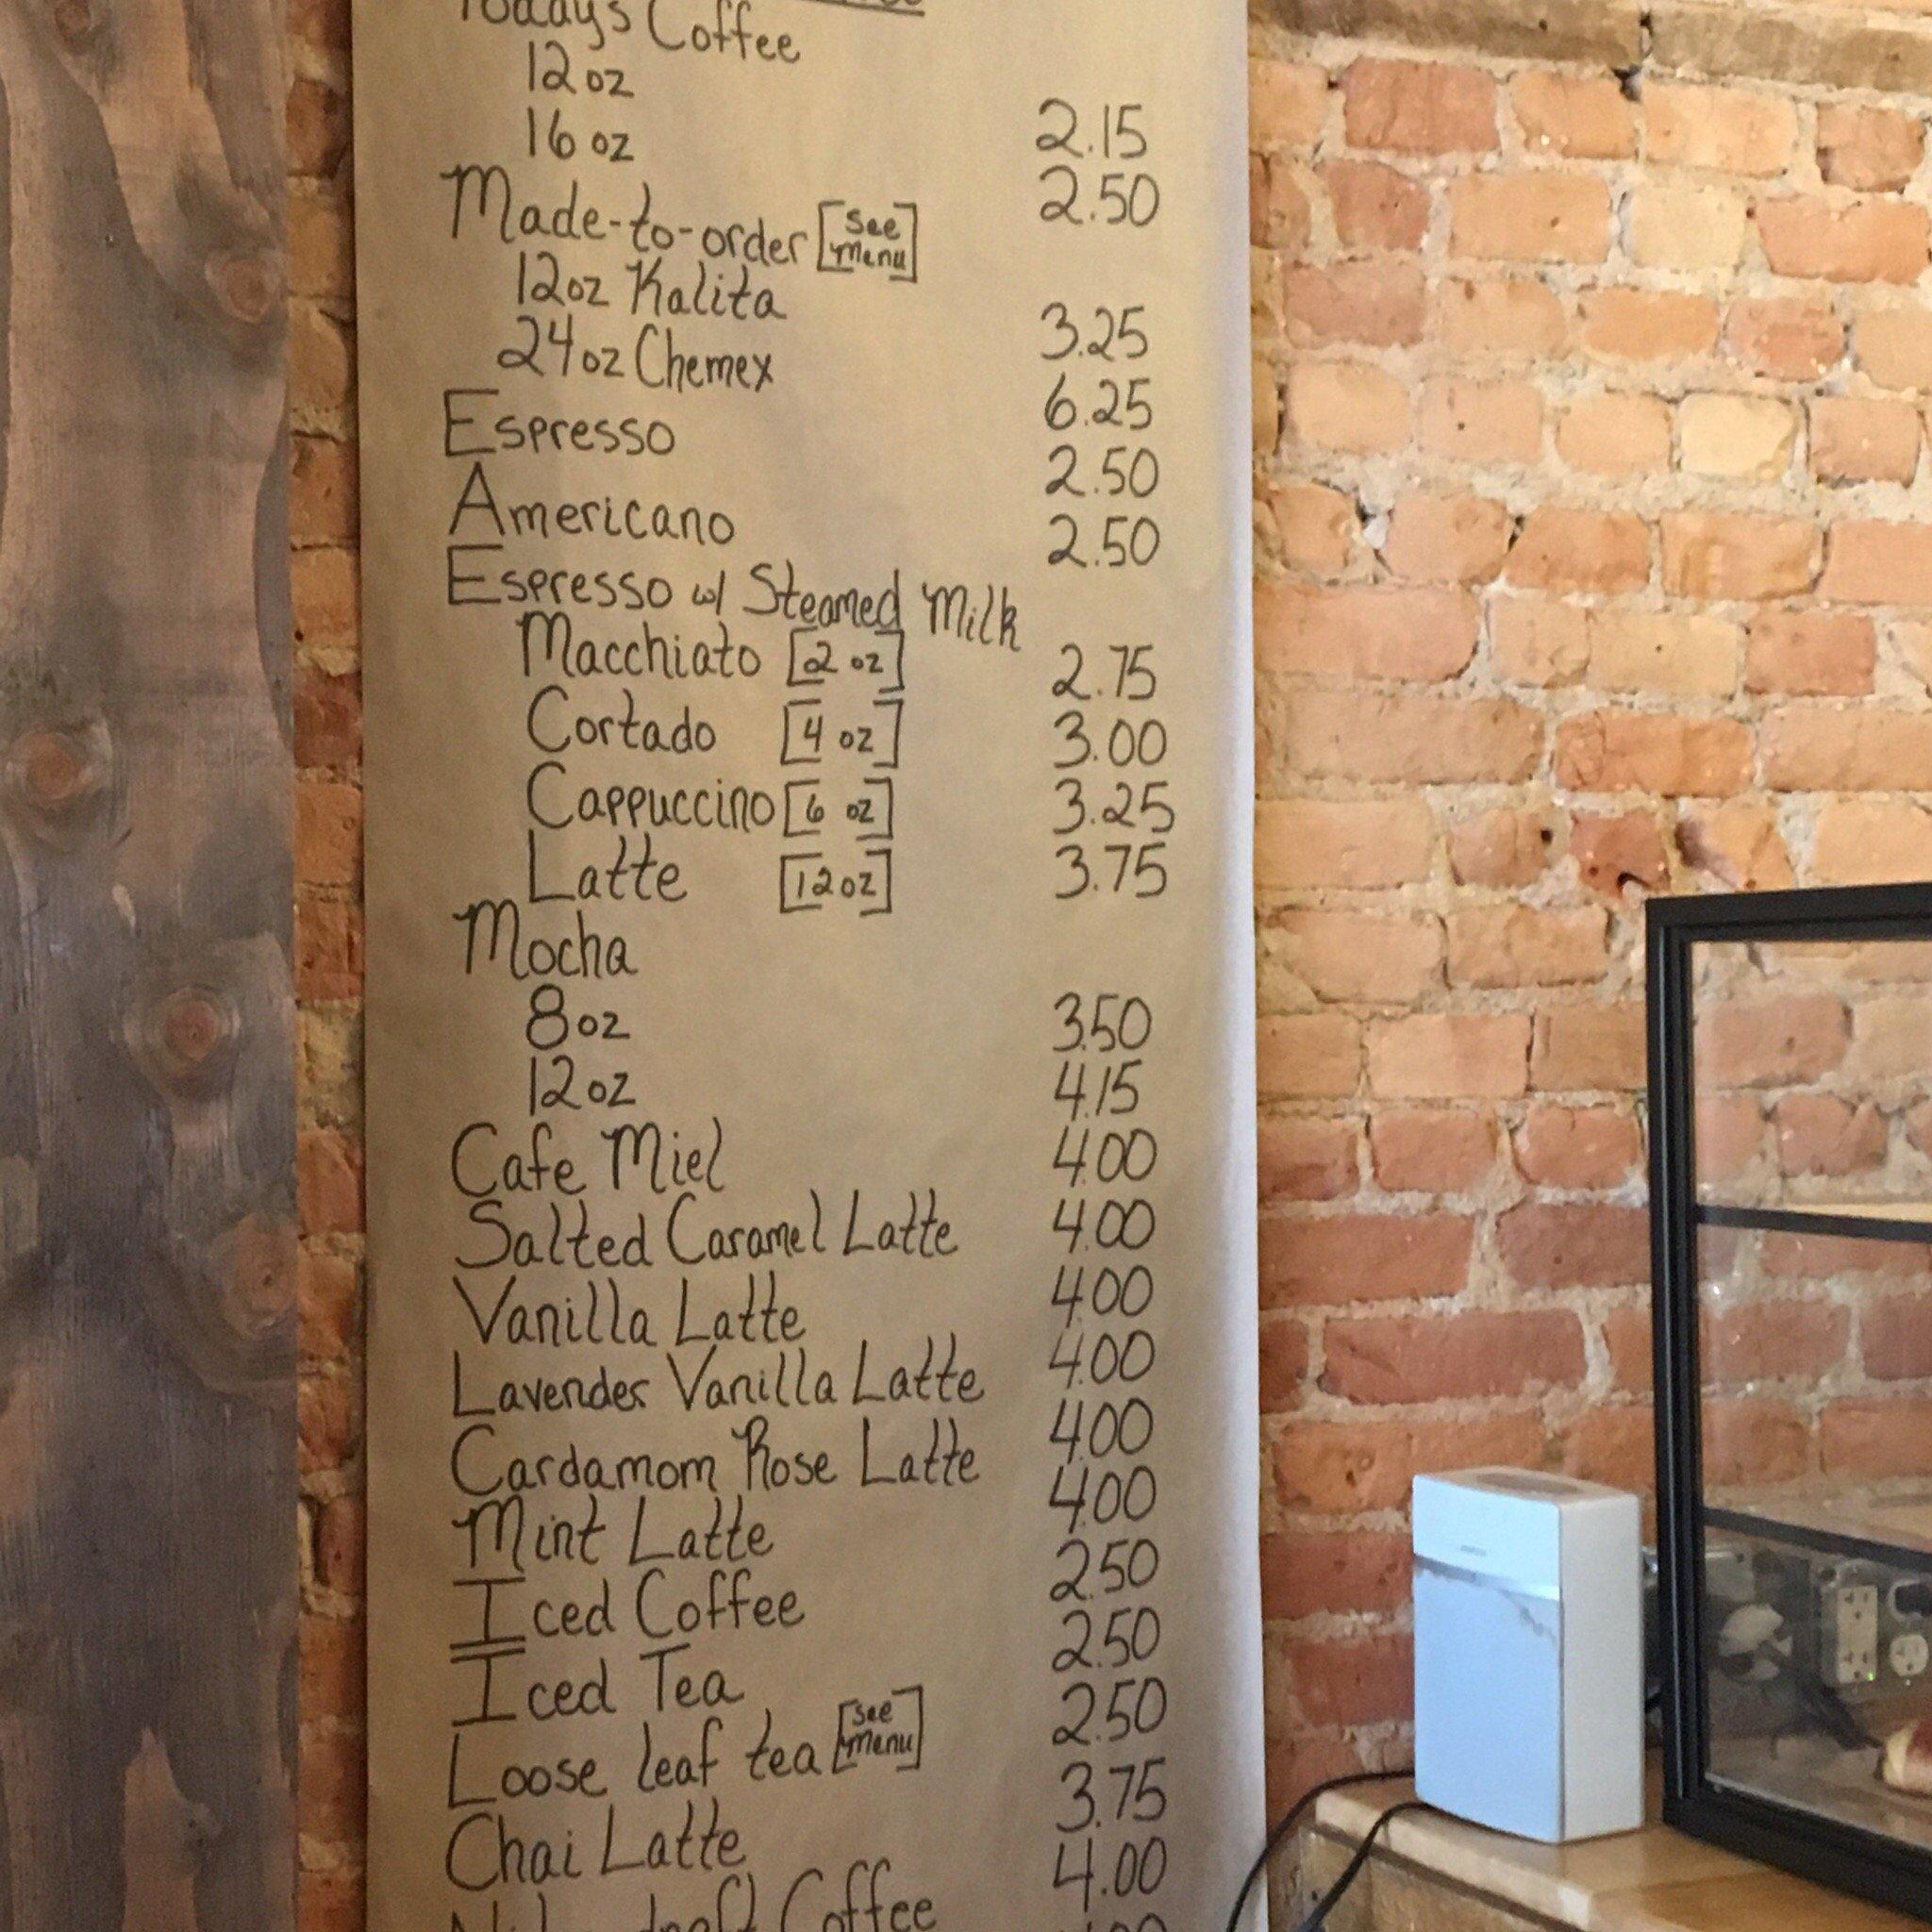 Todays Coffee
12 oz 2.15
16 oz 2.50
Made-to-order [see menu]
12oz Kalita 3.25
24oz Chemex 6.25
Espresso 2.50
Americano 2.50
Espresso w/ Steamed Milk
Macchiato [2 oz] 2.75
Cortado [4 oz] 3.00
Cappuccino [6 oz] 3.25
Latte [12oz] 3.75
Mocha
8oz 3.50
12oz 4.15
Cafe Miel 4.00
Salted Caramel Latte 4.00
Vanilla Latte 4.00
Lavender Vanilla Latte 4.00
Cardamom Rose Latte 4.00
Mint Latte 4.00
Iced Coffee 2.50
Iced Tea 2.50
Loose leaf tea [see menu] 2.50
Chai Latte 3.75
draft Coffee 4.00